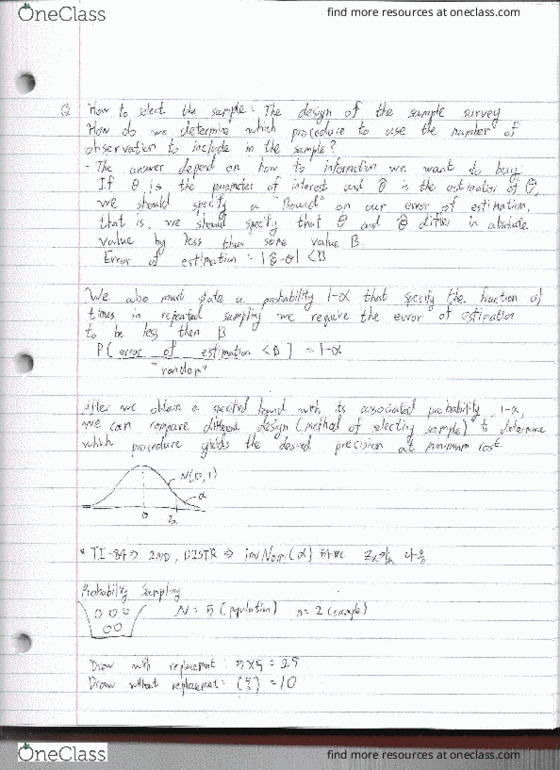 OneClass
find more resources at oneclass.com
Q How to select the sample: The design of the sample survey
How do we determine which procedure to use the number of
observation to include in the sample?
- The answer depend on how to information we want to buy.
If θ is the parameter of interest and θ̂ is the estimator of θ,
we should specify a "Bound" on our error of estimation,
that is, we should specify that θ and θ̂ differs in absolute
value by less then some value B.
Error of estimation = |θ̂-θ| < B
We also must state a probability 1-α that specify the fraction of
times in repeated sampling we require the error of estimation
to be less then B
P( error of estimation < B ) = 1-α
"random"
After we obtain a specified bound with its associated probability 1-α,
we can compare different design (method of selecting sample) to determine
which procedure yields the desired precision at minimum cost.
N(0,1)
α
0 Zα
* TI-84 ⇒ 2ND, DISTR ⇒ invNorm(α)
Probability Sampling
N = 5 (population) n = 2 (sample)
Draw with replacement: 5×5 = 25
Draw without replacement: (5 2) = 10
OneClass
find more resources at oneclass.com